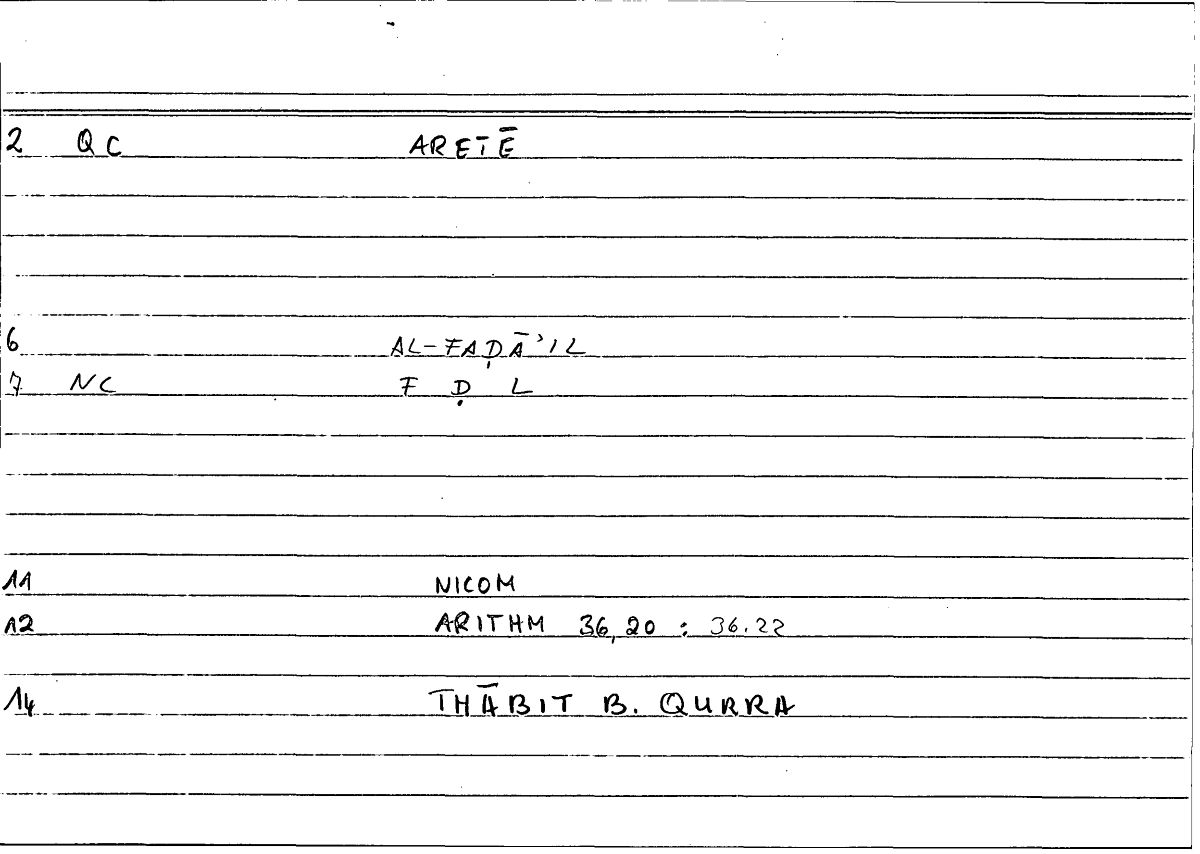 2 QC ARETĒ
6 AL-FAḌĀʾIL
7 NC F Ḍ L
11 NICOM
12 ARITHM 36,20 : 36.22
14 THĀBIT B. QURRA